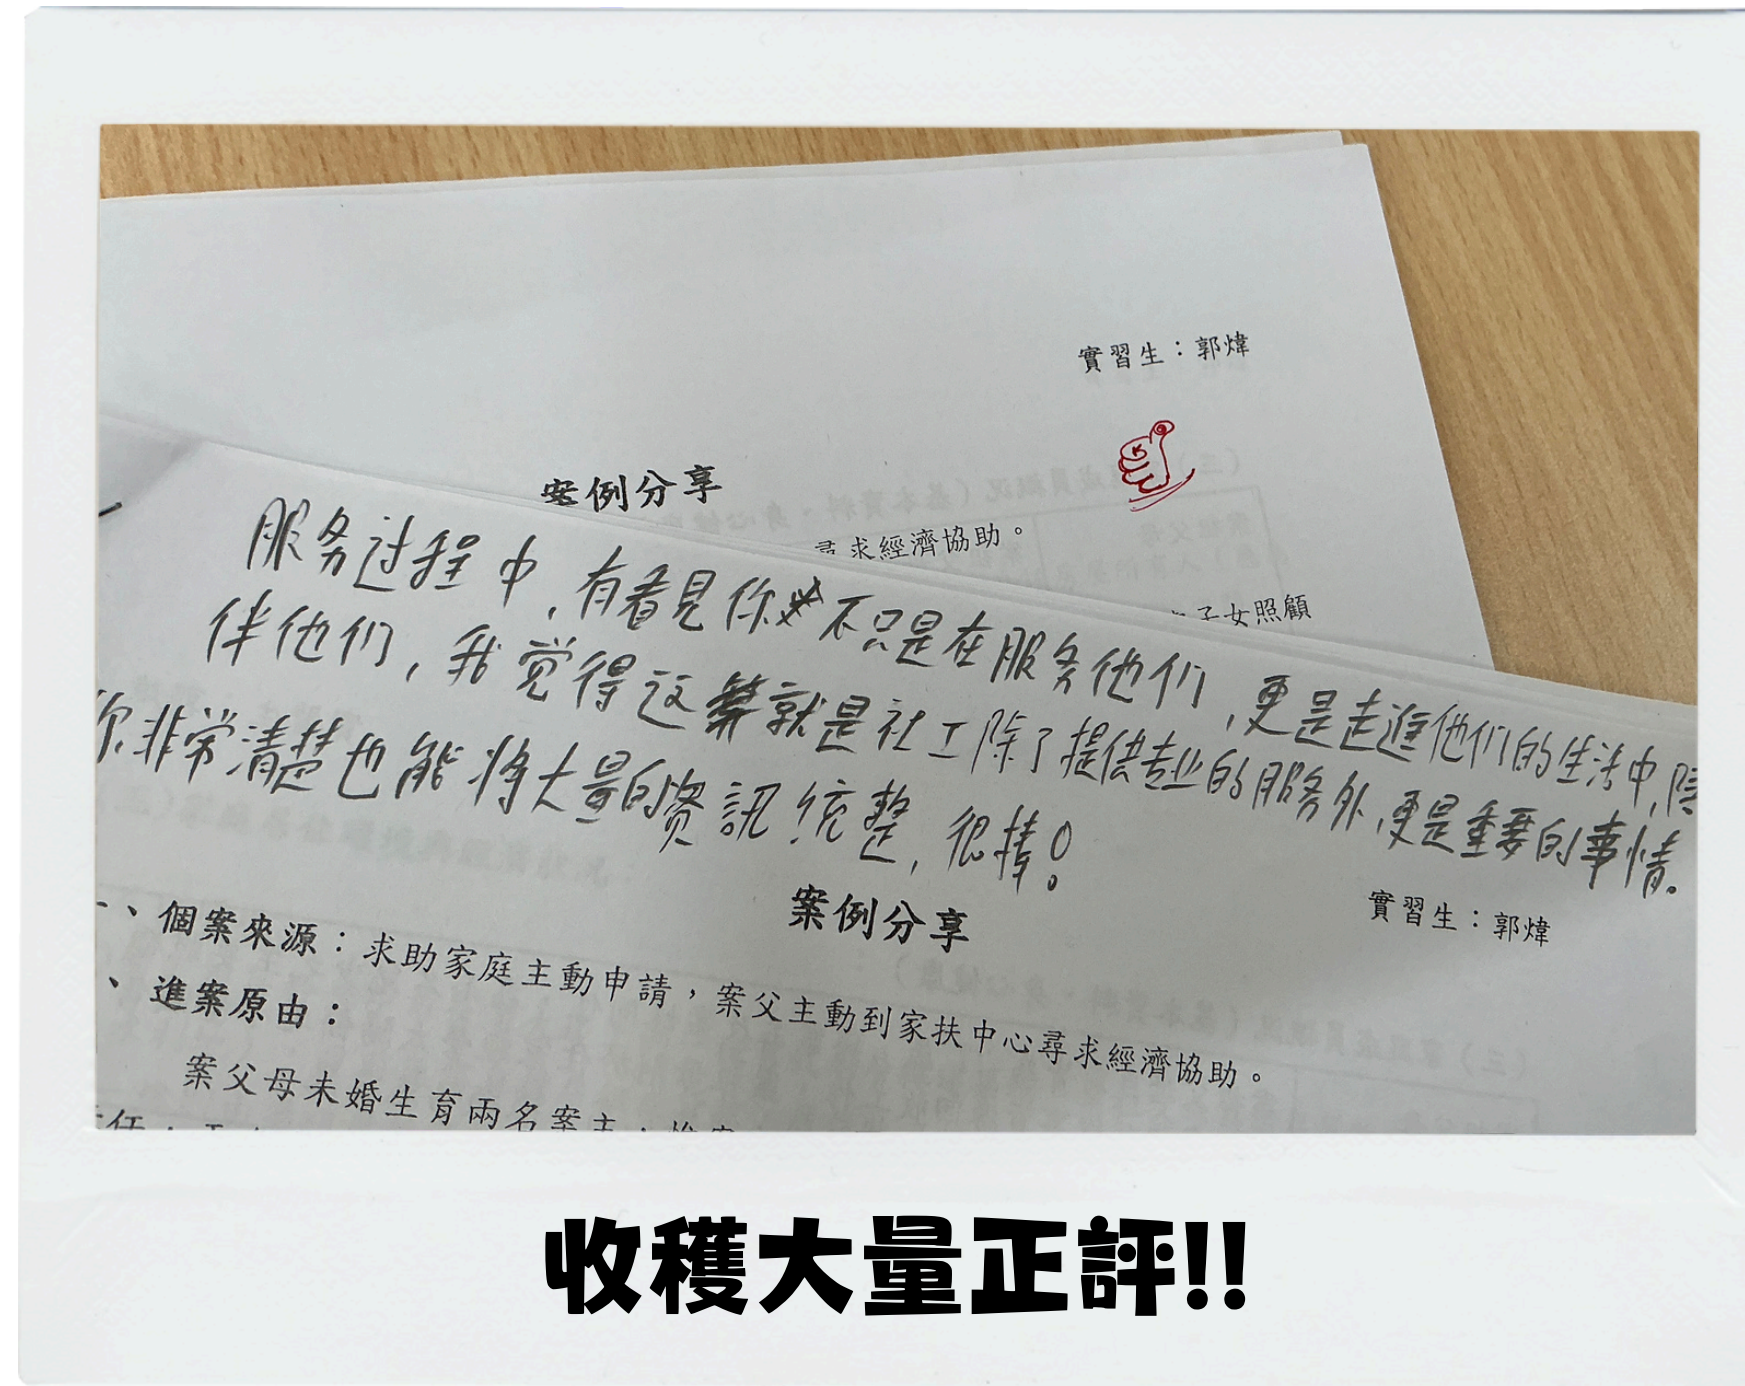 實習生：郭煒
案例分享
尋求經濟協助。
子女照顧
服务过程中,有看見你不只是在服务他们,更是走進他们的生活中,陪
伴他们,我觉得这算就是社工除了提供专业的服务外,更是重要的事情。
你非常清楚也能将大量的資訊统整,很棒!
案例分享
實習生：郭煒
一、個案來源：求助家庭主動申請，案父主動到家扶中心尋求經濟協助。
、進案原由：
案父母未婚生育兩名案主，
收穫大量正評!!